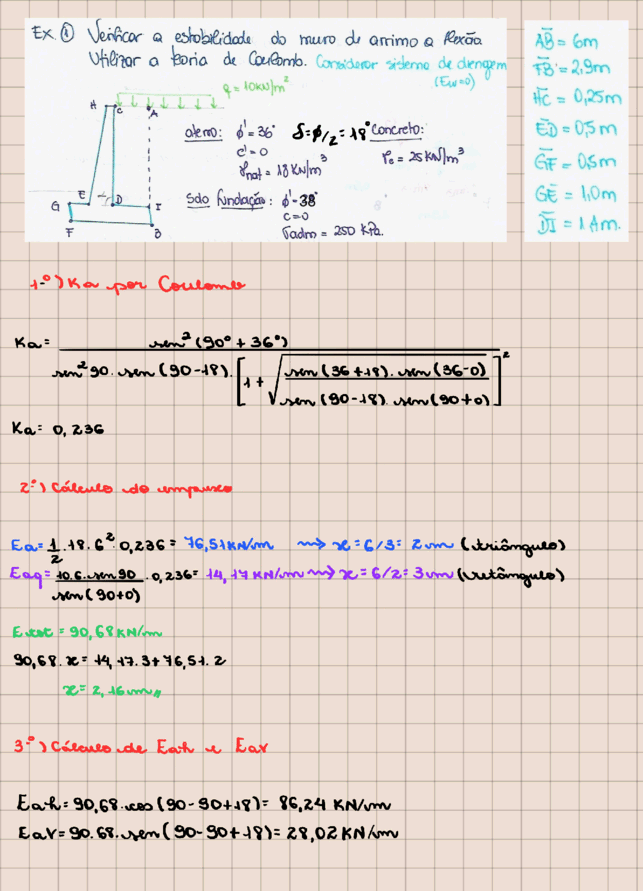 Ex. ① Verificar a estabilidade do muro de arrimo a flexão
Utilizar a teoria de Coulomb. Considerar sistema de drenagem
(Ew=0)
q = 10 kN/m²
H C A
G E D I
F B
aterro: ϕ' = 36° δ = ϕ/2 = 18°
c' = 0
γnat = 18 kN/m³
concreto:
γc = 25 kN/m³
Solo fundação: ϕ' = 38°
c = 0
σadm = 250 kPa.
AB = 6m
FB = 2,9m
HC = 0,25m
ED = 0,5m
GF = 0,5m
GE = 1,0m
DI = 1,4m.
1º) Ka por Coulomb
Ka = sen² (90° + 36°)
sen² 90 . sen (90-18) . [1 + √ sen (36+18) . sen (36-0) ]²
sen (90-18) . sen (90+0)
Ka = 0,236
2º) Cálculo do empuxo
Ea = 1/2 . 18 . 6² . 0,236 = 76,51 KN/m ⟿ x = 6/3 = 2m (triângulo)
Eaq = 10.6.sen 90 . 0,236 = 14,17 KN/m ⟿ x = 6/2 = 3m (retângulo)
sen (90+0)
Etot = 90,68 KN/m
90,68 . x = 14,17 . 3 + 76,51 . 2
x = 2,16m
3º) Cálculo de Eah e Eav
Eah = 90,68 . cos (90-90+18) = 86,24 KN/m
Eav = 90.68 . sen (90-90+18) = 28,02 KN/m